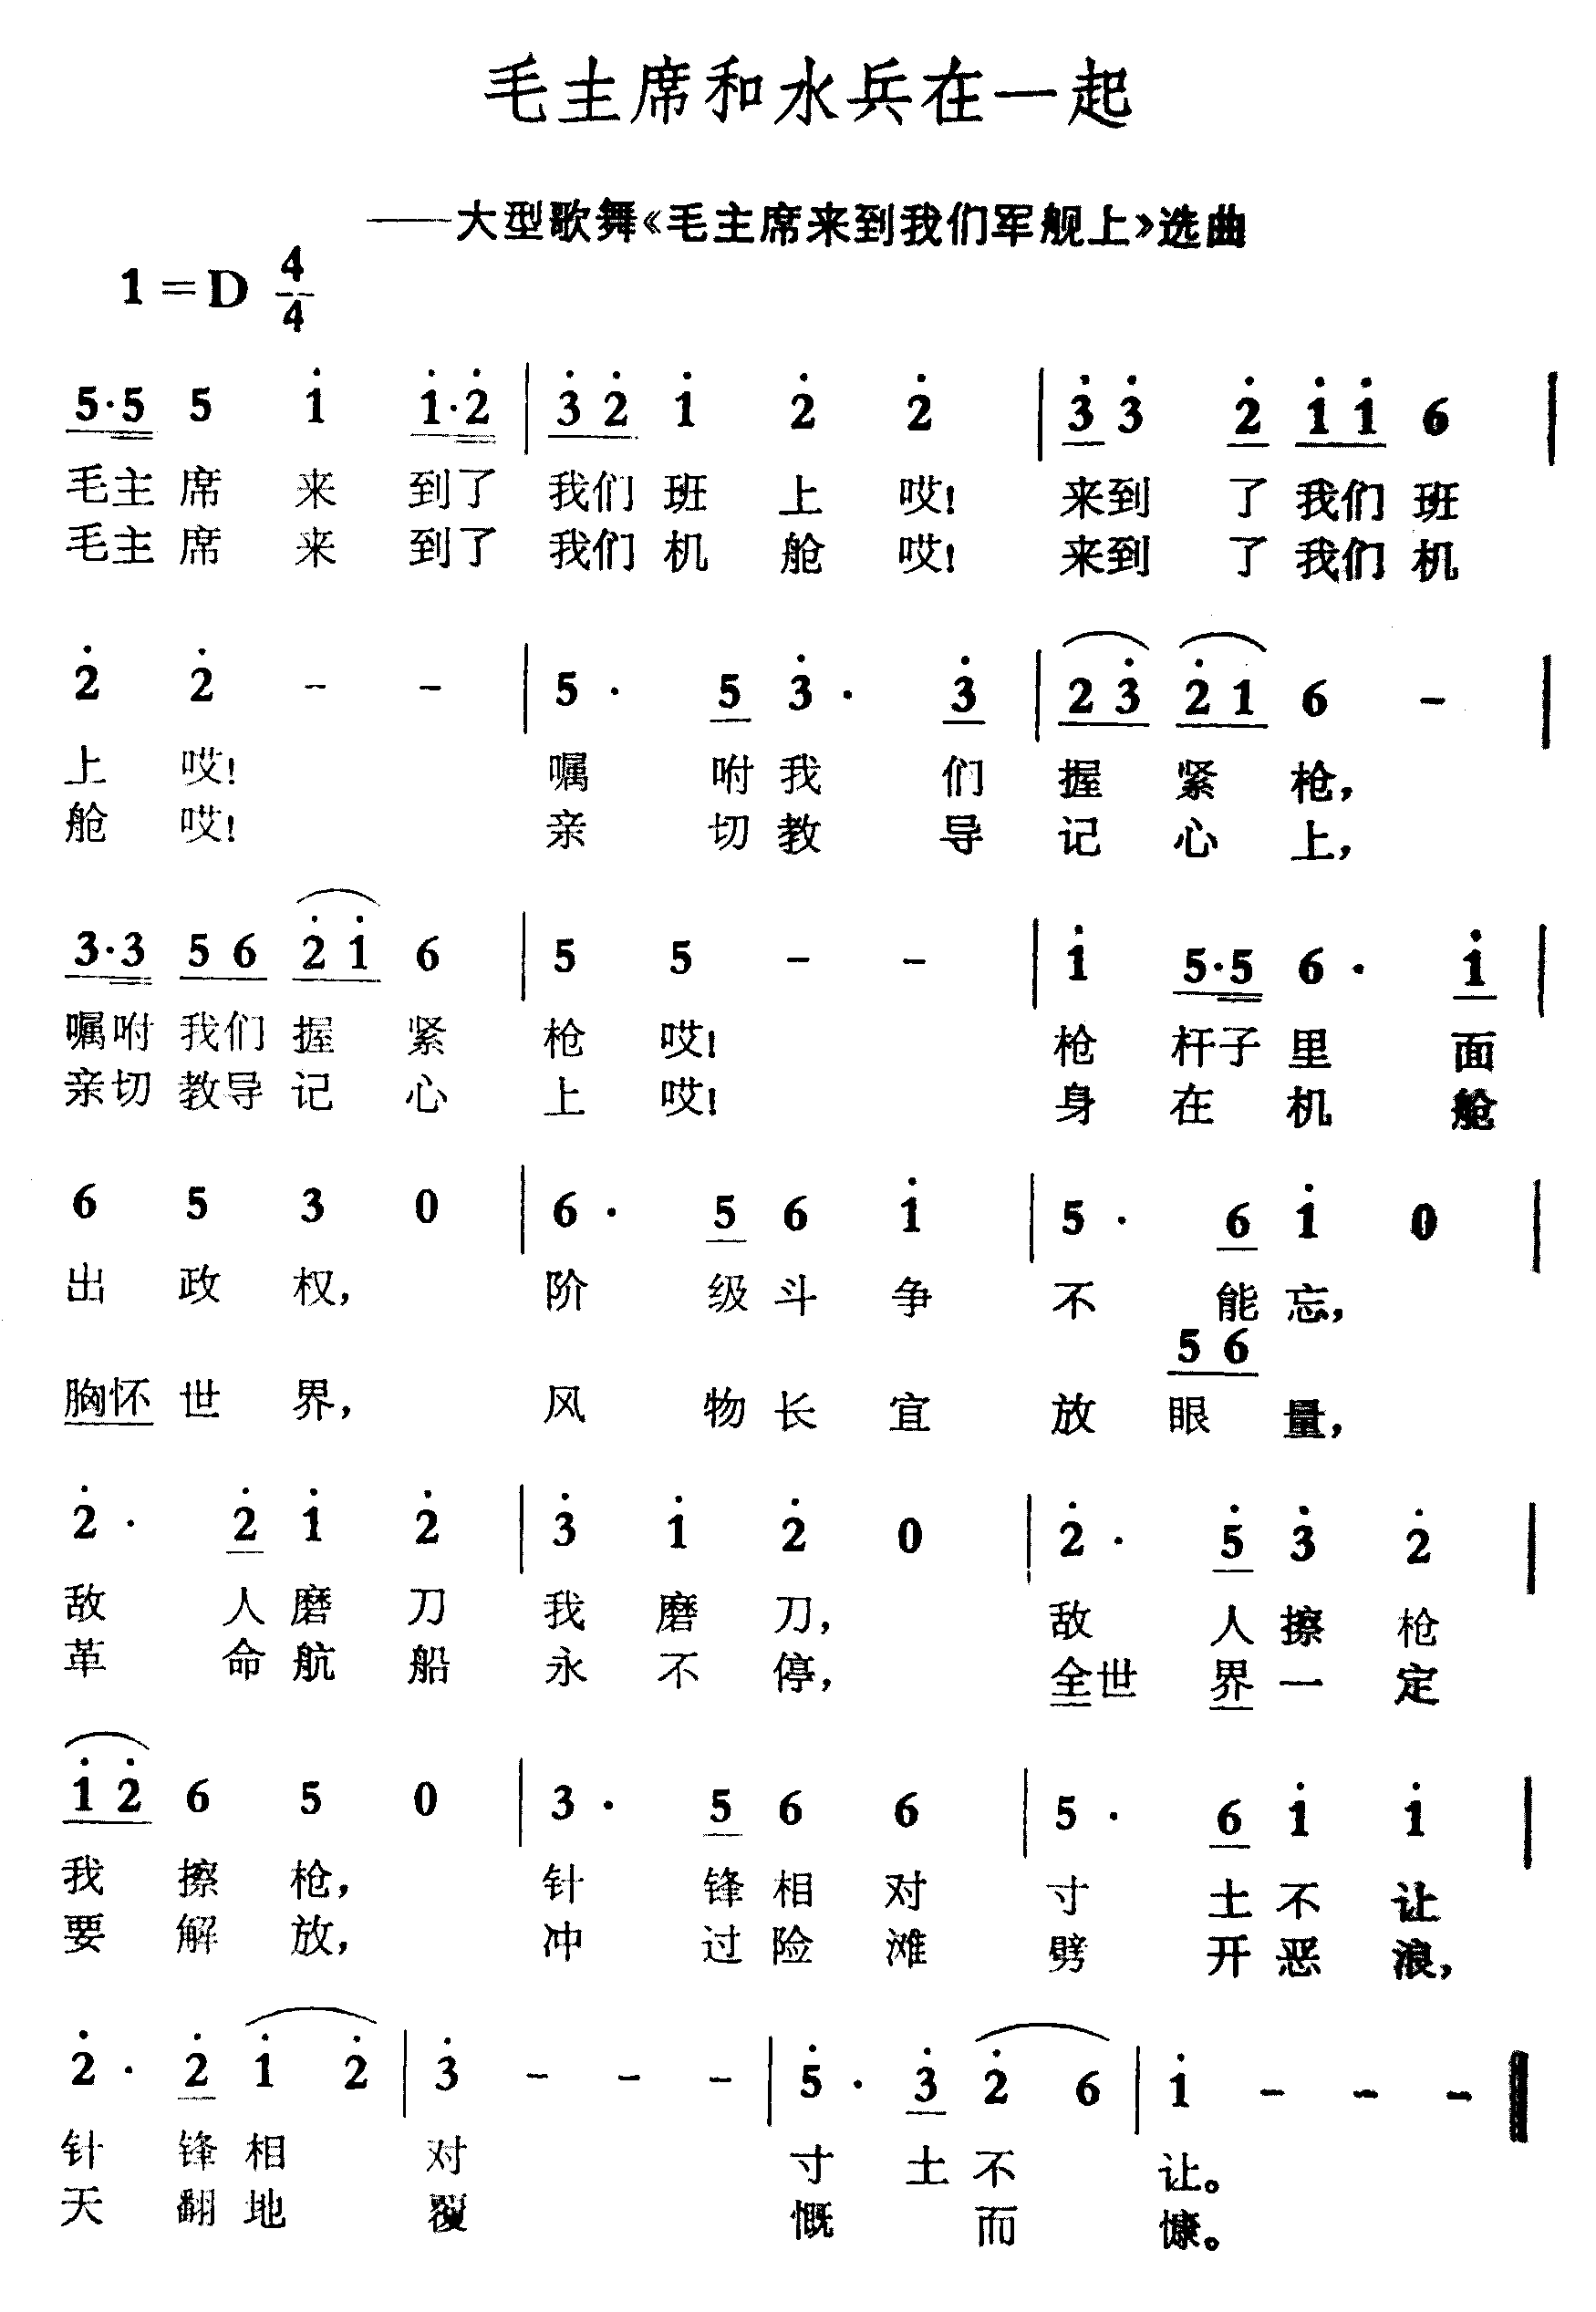 毛主席和水兵在一起
——大型歌舞《毛主席来到我们军舰上》选曲
1=D 4/4
5·5 5 1̇ 1̇·2̇ | 3̇ 2̇ 1̇ 2̇ 2̇ | 3̇ 3̇ 2̇ 1̇ 1̇ 6 |
毛主席 来 到了 我们 班 上 哎! 来到 了 我们 班
毛主席 来 到了 我们 机 舱 哎! 来到 了 我们 机
2̇ 2̇ - - | 5· 5 3̇· 3̇ | 2 3̇ 2̇ 1 6 - |
上 哎! 嘱 咐 我 们 握 紧 枪,
舱 哎! 亲 切 教 导 记 心 上,
3·3 5 6 2̇ 1̇ 6 | 5 5 - - | 1̇ 5·5 6· 1̇ |
嘱咐 我们 握 紧 枪 哎! 枪 杆子 里 面
亲切 教导 记 心 上 哎! 身 在 机 舱
6 5 3 0 | 6· 5 6 1̇ | 5· 6 1̇ 0 |
出 政 权, 阶 级 斗 争 不 能 忘,
5 6
胸怀 世 界, 风 物 长 宜 放 眼 量,
2̇· 2̇ 1̇ 2̇ | 3̇ 1̇ 2̇ 0 | 2̇· 5̇ 3̇ 2̇ |
敌 人 磨 刀 我 磨 刀, 敌 人 擦 枪
革 命 航 船 永 不 停, 全世 界 一 定
1̇ 2̇ 6 5 0 | 3· 5 6 6 | 5· 6 1̇ 1̇ |
我 擦 枪, 针 锋 相 对 寸 土 不 让
要 解 放, 冲 过 险 滩 劈 开 恶 浪,
2̇· 2̇ 1̇ 2̇ | 3̇ - - - | 5̇· 3̇ 2̇ 6 | 1̇ - - - ‖
针 锋 相 对 寸 土 不 让。
天 翻 地 覆 慨 而 慷。